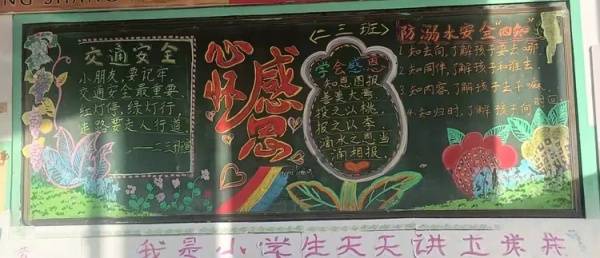 交通安全
小朋友，要记牢，
交通安全最重要
红灯停，绿灯行，
走路要走人行道
——二三班宣
心怀
感恩
〈二三班〉
学会感恩
知恩图报
善莫大焉
投之以桃，
报之以李
滴水之恩当
涌相报
防溺水安全"四知"
1.知去向，了解孩子要去哪
2.知同伴，了解孩子和谁去
3.知内容，了解孩子去干嘛
4.知归时，了解孩子何时回
我是小学生天天讲